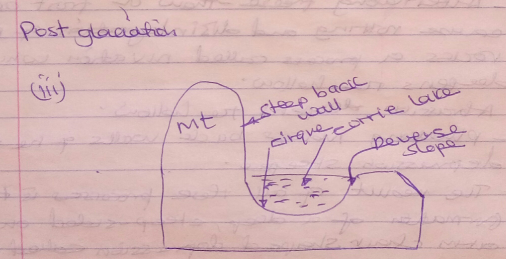 Post glaciation
(iii)
mt
steep back
wall
cirque
corrie lake
Reverse
slope